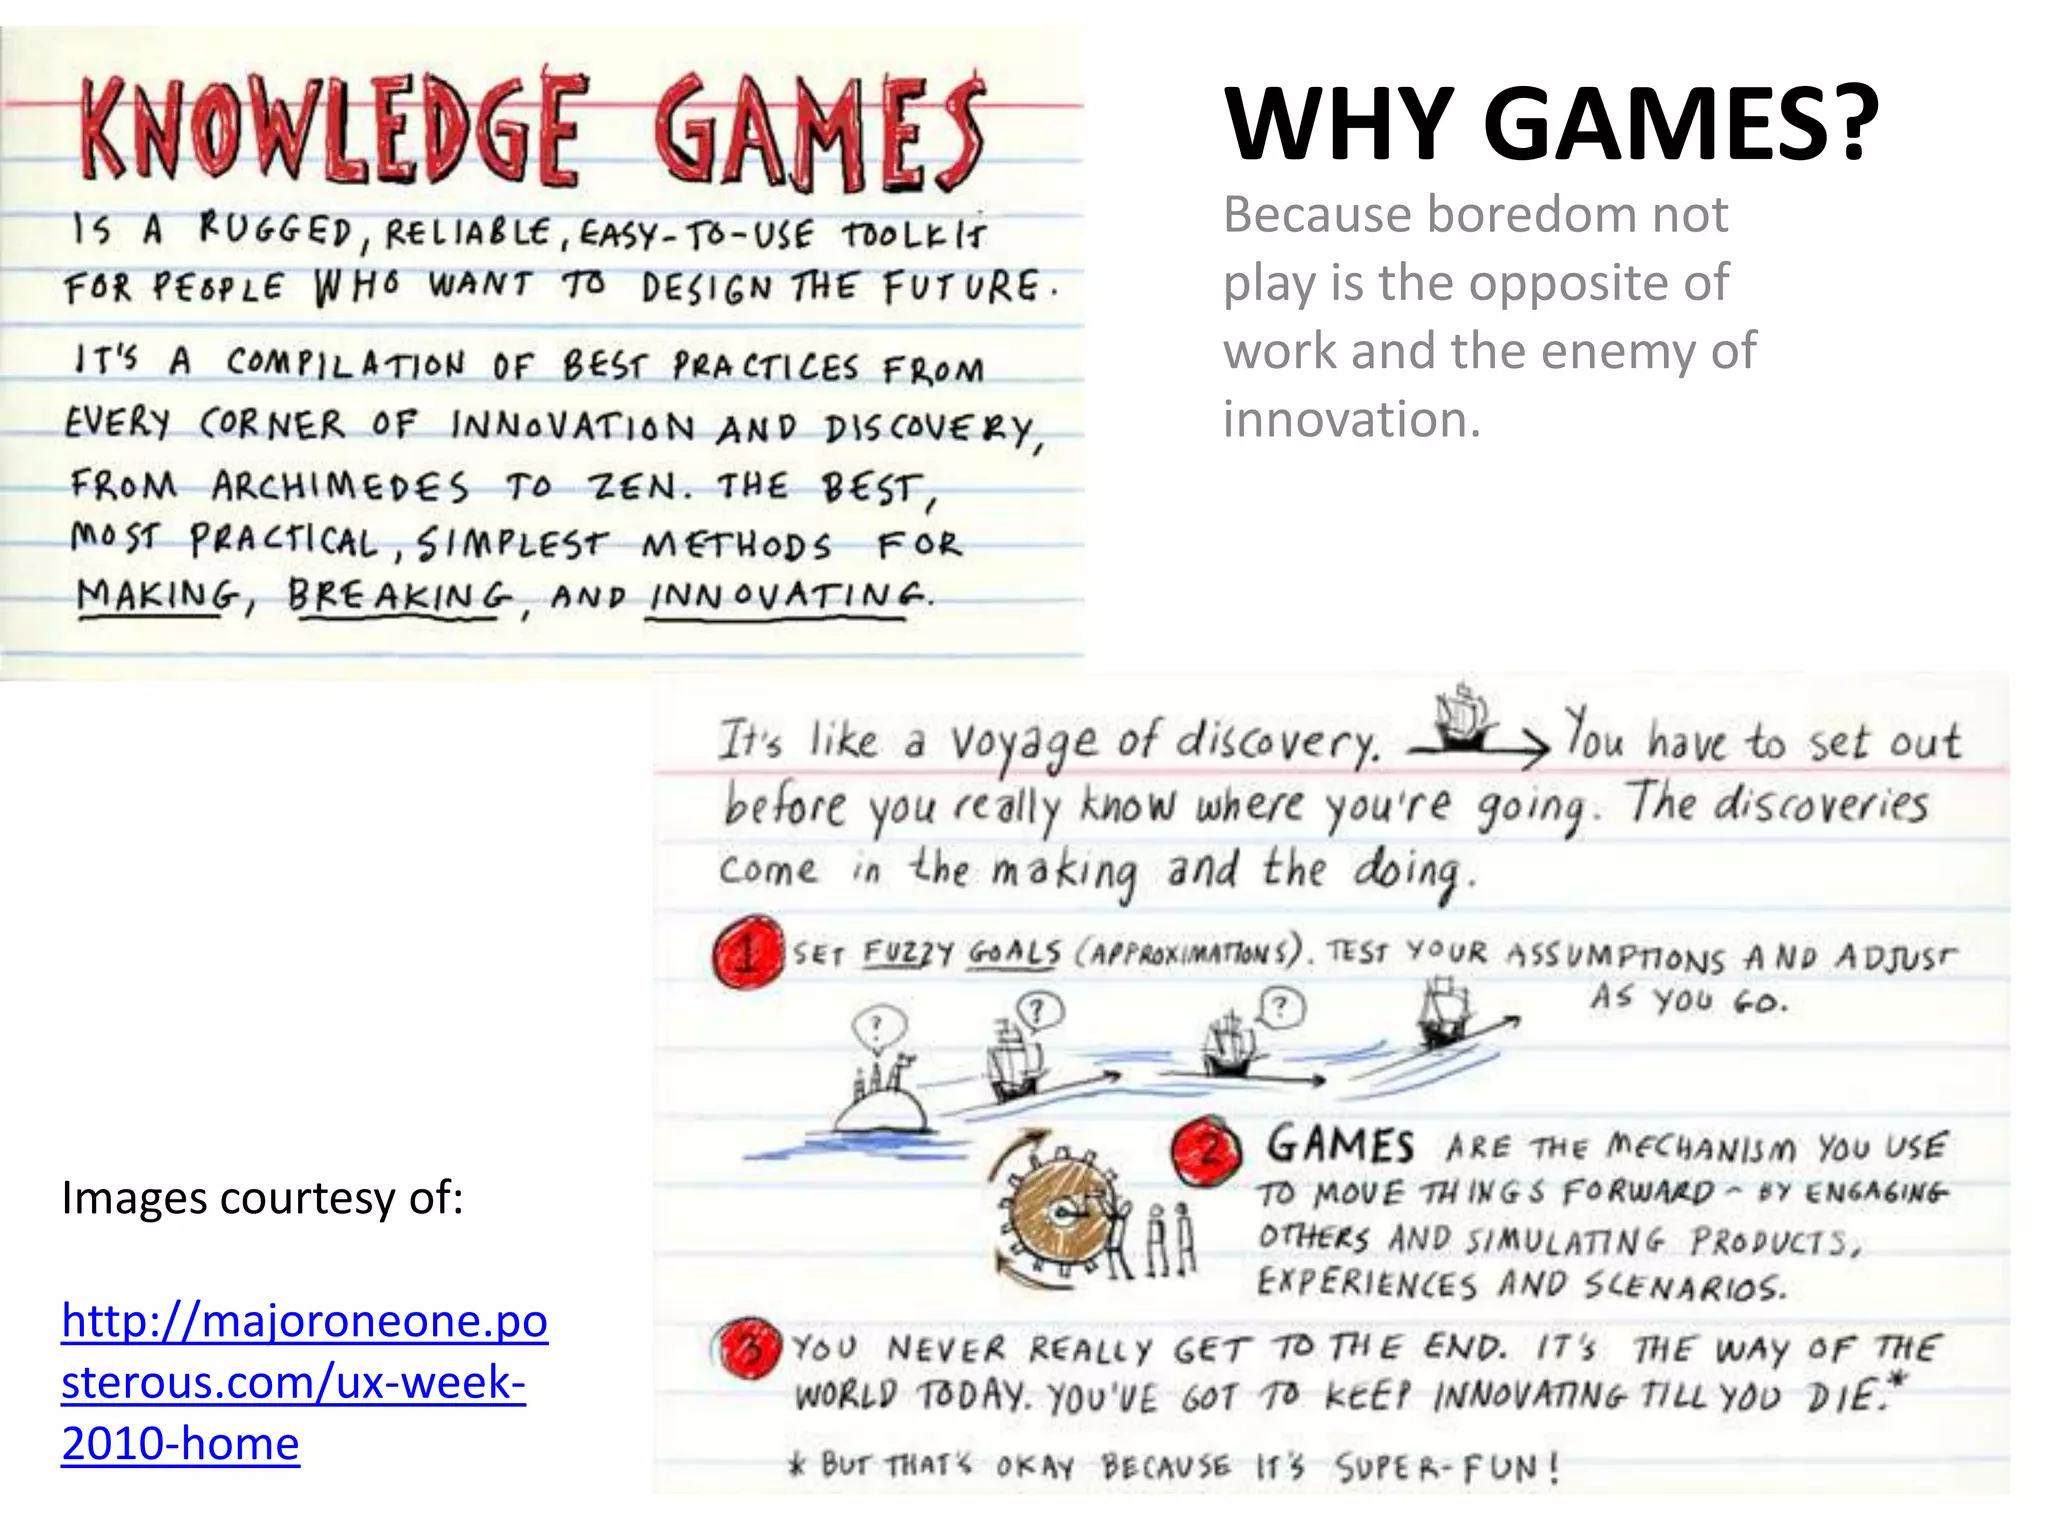 KNOWLEDGE GAMES
IS A RUGGED, RELIABLE, EASY-TO-USE TOOLKIT
FOR PEOPLE WHO WANT TO DESIGN THE FUTURE.
IT'S A COMPILATION OF BEST PRACTICES FROM
EVERY CORNER OF INNOVATION AND DISCOVERY,
FROM ARCHIMEDES TO ZEN. THE BEST,
MOST PRACTICAL, SIMPLEST METHODS FOR
MAKING, BREAKING, AND INNOVATING.
WHY GAMES?
Because boredom not
play is the opposite of
work and the enemy of
innovation.
It's like a voyage of discovery. You have to set out
before you really know where you're going. The discoveries
come in the making and the doing.
1 SET FUZZY GOALS (APPROXIMATIONS). TEST YOUR ASSUMPTIONS AND ADJUST
AS YOU GO.
? ? ?
2 GAMES ARE THE MECHANISM YOU USE
TO MOVE THINGS FORWARD - BY ENGAGING
OTHERS AND SIMULATING PRODUCTS,
EXPERIENCES AND SCENARIOS.
3 YOU NEVER REALLY GET TO THE END. IT'S THE WAY OF THE
WORLD TODAY. YOU'VE GOT TO KEEP INNOVATING TILL YOU DIE.*
* BUT THAT'S OKAY BECAUSE IT'S SUPER-FUN!
Images courtesy of:
http://majoroneone.po
sterous.com/ux-week-
2010-home